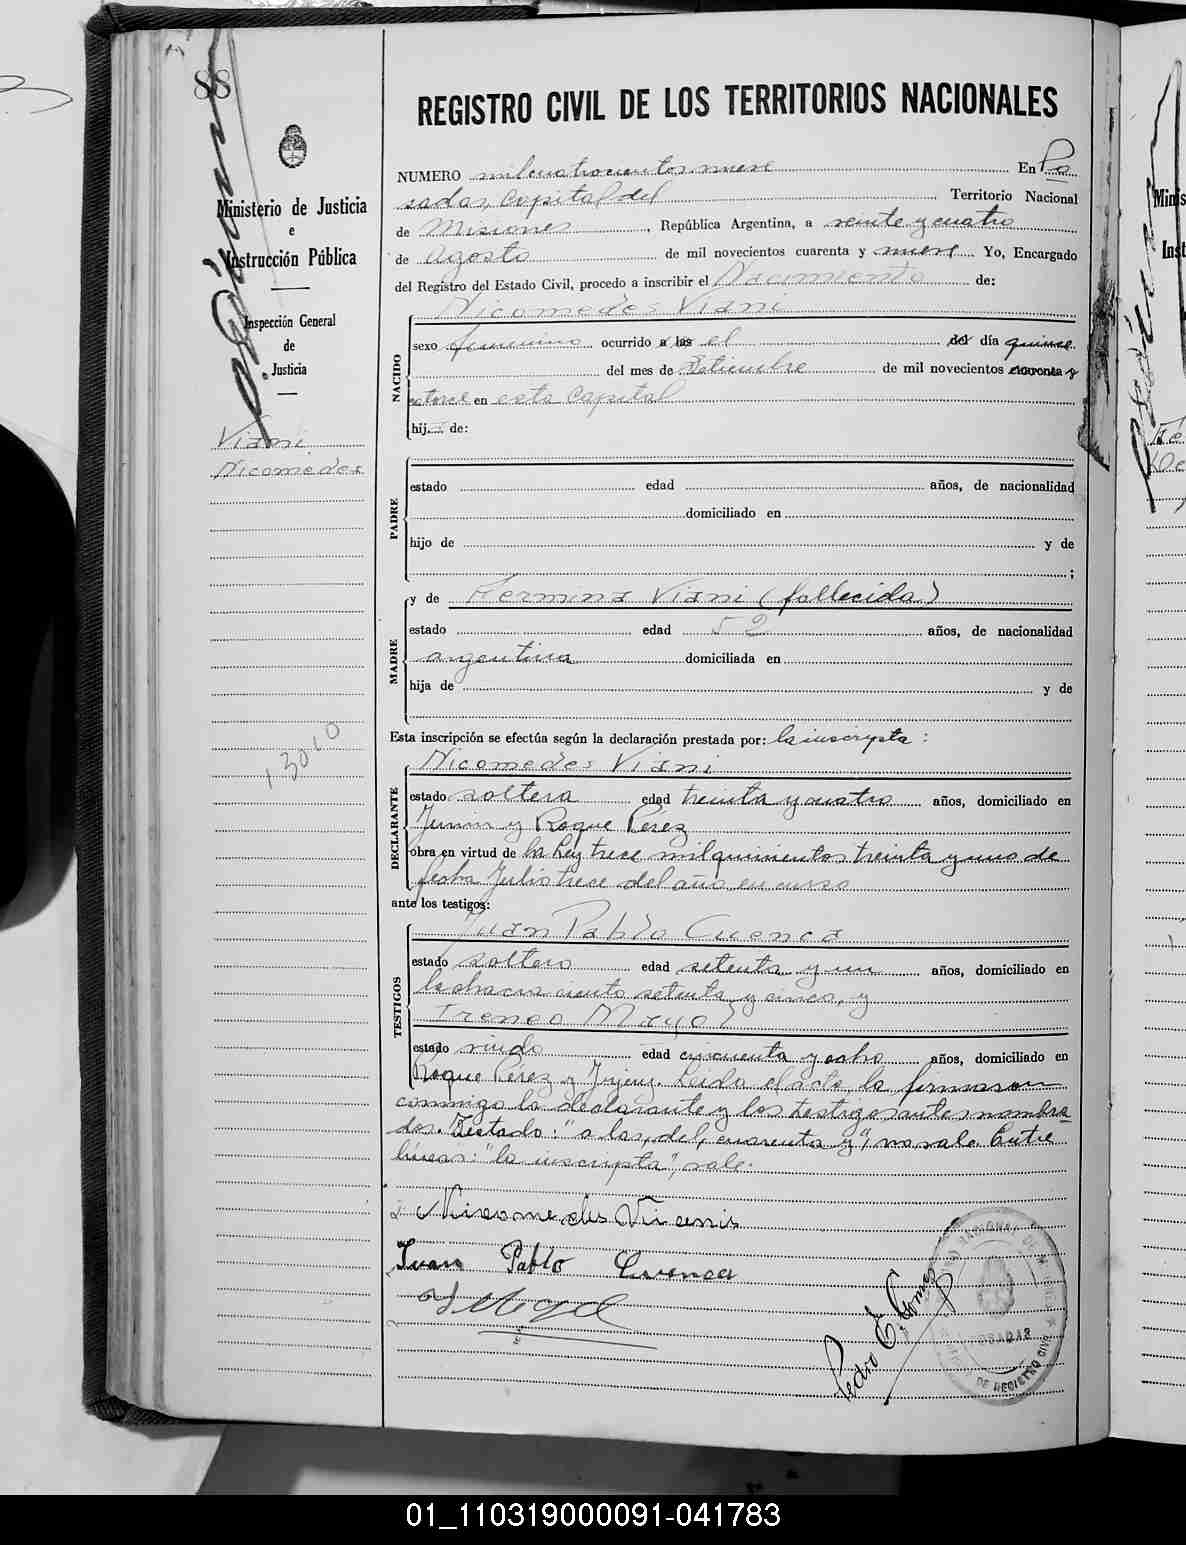 88
Ministerio de Justicia
e
Instrucción Pública
Inspección General
de
Justicia
Viani
Nicomedes
13010
REGISTRO CIVIL DE LOS TERRITORIOS NACIONALES
NUMERO mil cuatrocientos nueve En Po
sadas, Capital del Territorio Nacional
de Misiones, República Argentina, a veinte y cuatro
de Agosto de mil novecientos cuarenta y nueve Yo, Encargado
del Registro del Estado Civil, procedo a inscribir el Nacimiento de:
Nicomedes Viani
NACIDO
sexo femenino ocurrido a las el del día quince
del mes de Setiembre de mil novecientos cuarenta y
catorce en esta Capital
hij... de:
PADRE
estado edad años, de nacionalidad
domiciliado en
hijo de y de
;
MADRE
y de Hermina Viani (fallecida)
estado edad 52 años, de nacionalidad
argentina domiciliada en
hija de y de
Esta inscripción se efectúa según la declaración prestada por: la inscripta:
DECLARANTE
Nicomedes Viani
estado soltera edad treinta y cuatro años, domiciliado en
Junin y Roque Pérez
obra en virtud de la Ley trece mil quinientos treinta y uno de
fecha Julio trece del año en curso
ante los testigos:
TESTIGOS
Juan Pablo Cuenca
estado soltero edad setenta y un años, domiciliado en
la chacra ciento setenta y cinco, y
Ireneo Mayol
estado viudo edad cincuenta y ocho años, domiciliado en
Roque Pérez y Jujuy. Leida el acta, la firmaron
conmigo la declarante y los testigos antes nombra
dos. Testado: "a las, del, cuarenta y", no vale. Entre
lineas: "la inscripta", vale.
Nicomedes Vianis
Juan Pablo Cuenca
Pedro E. Gomez
POSADAS
DE REGISTRO CIVIL
Minis
Inst
01_110319000091-041783